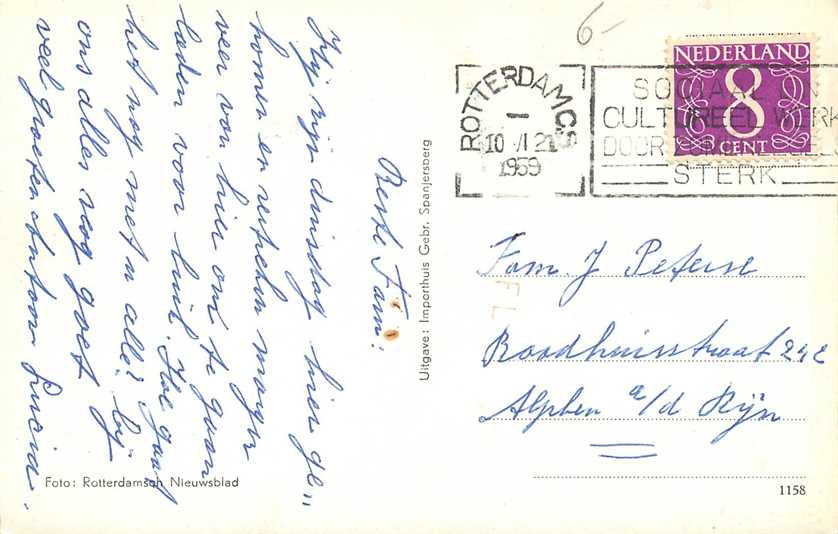 6-
NEDERLAND
8
CENT
ROTTERDAM CS
1
10 VI 21
1959
SOCIAAL EN
CULTUREEL WERK
DOOR
STERK
Beste Fam:
Wij zijn dinsdag hier ge„
komen en vertrekken morgen
weer van hier om te gaan
laden voor Tuil. Hoe gaat
het nog met u alle? bij
ons alles nog goet
veel groeten Antoon Lucia.
Uitgave: Importhuis Gebr. Spanjersberg
Fam. J Peterse
Raadhuisstraat 242
Alphen a/d Rijn
Foto: Rotterdamsch Nieuwsblad
1158
FL